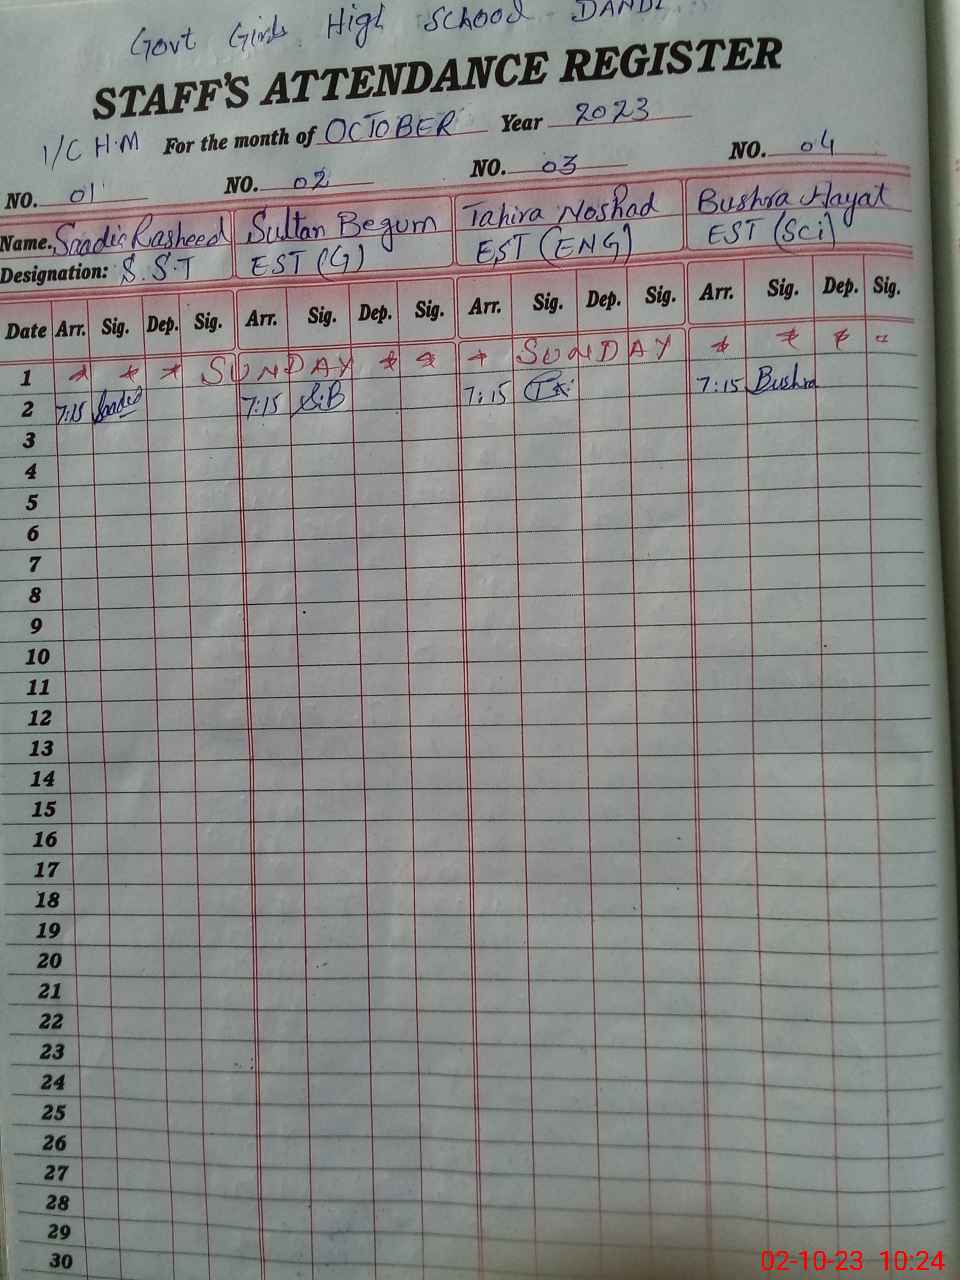 Govt Girls High School DANDI
STAFF'S ATTENDANCE REGISTER
I/C H.M For the month of OCTOBER Year 2023
NO. 01 NO. 02 NO. 03 NO. 04
Name. Saadia Rasheed Sultan Begum Tahira Noshad Bushra Hayat
Designation: S.S.T EST (G) EST (ENG) EST (Sci)
Date Arr. Sig. Dep. Sig. Arr. Sig. Dep. Sig. Arr. Sig. Dep. Sig. Arr. Sig. Dep. Sig.
1 * * * SUNDAY * * * SUNDAY * * * *
2 7:15 Saadia 7:15 S.B 7:15 7:15 Bushra
3
4
5
6
7
8
9
10
11
12
13
14
15
16
17
18
19
20
21
22
23
24
25
26
27
28
29
30
02-10-23 10:24